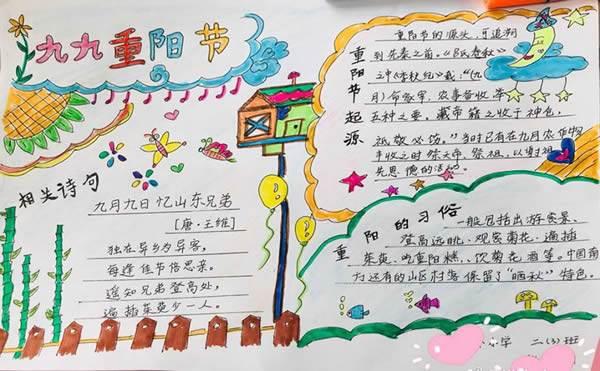 九九重阳节
相关诗句
九月九日忆山东兄弟
[唐·王维]
独在异乡为异客,
每逢佳节倍思亲。
遥知兄弟登高处,
遍插茱萸少一人。
重阳节起源
重阳节的源头,可追溯
到先秦之前。《吕氏春秋》
之中《季秋纪》载:"(九
月)命冢宰,农事备收,举
五种之要。藏帝籍之收于神仓,
祗敬必饬。"当时已有在九月农作物
丰收之时祭天帝、祭祖,以谢祖
先恩德的活动。
重阳的习俗
一般包括出游赏景、
登高远眺、观赏菊花、遍插
茱萸、吃重阳糕、饮菊花酒等。中国南
方还有的山区村落保留了"晒秋"特色。
小学 二(3)班